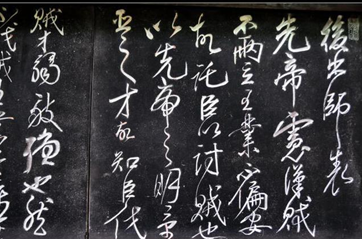 後出師表
先帝慮漢賊
不兩立王業不偏安
故託臣以討賊也
以先帝之明量
臣之才故知臣伐
賊才弱敵彊也然